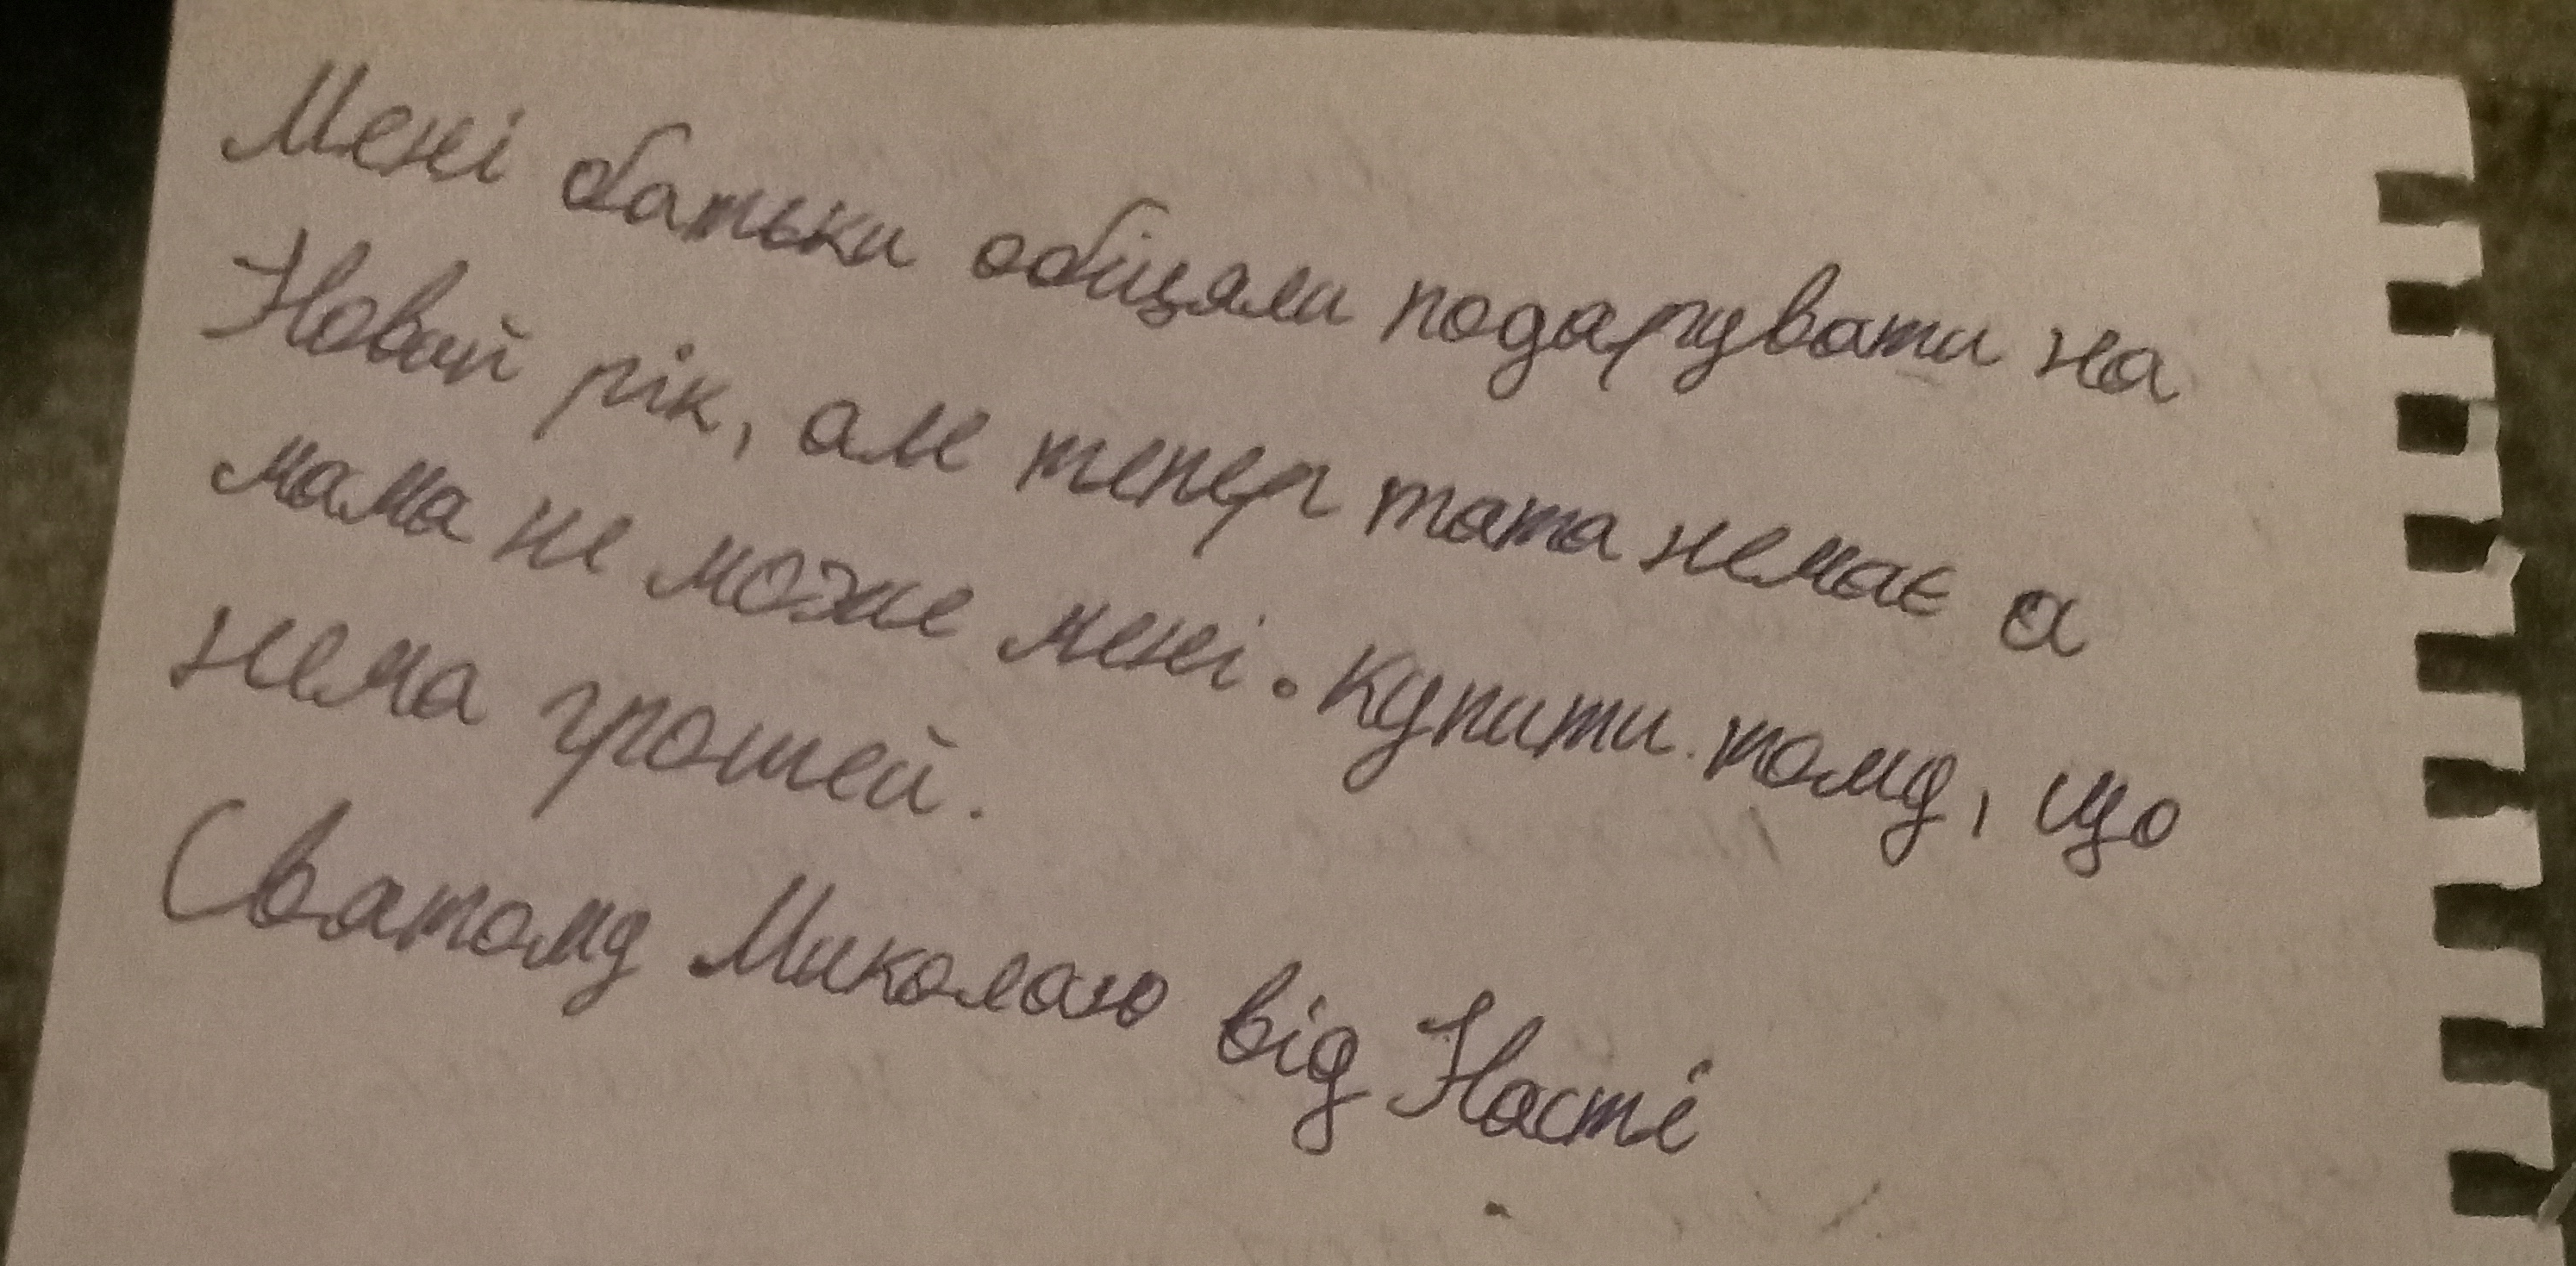 Мені батьки обіцяли подарувати на
Новий рік, але тепер тата немає а
мама не може мені. Купити тому, що
нема грошей.
Святому Миколаю від Насті